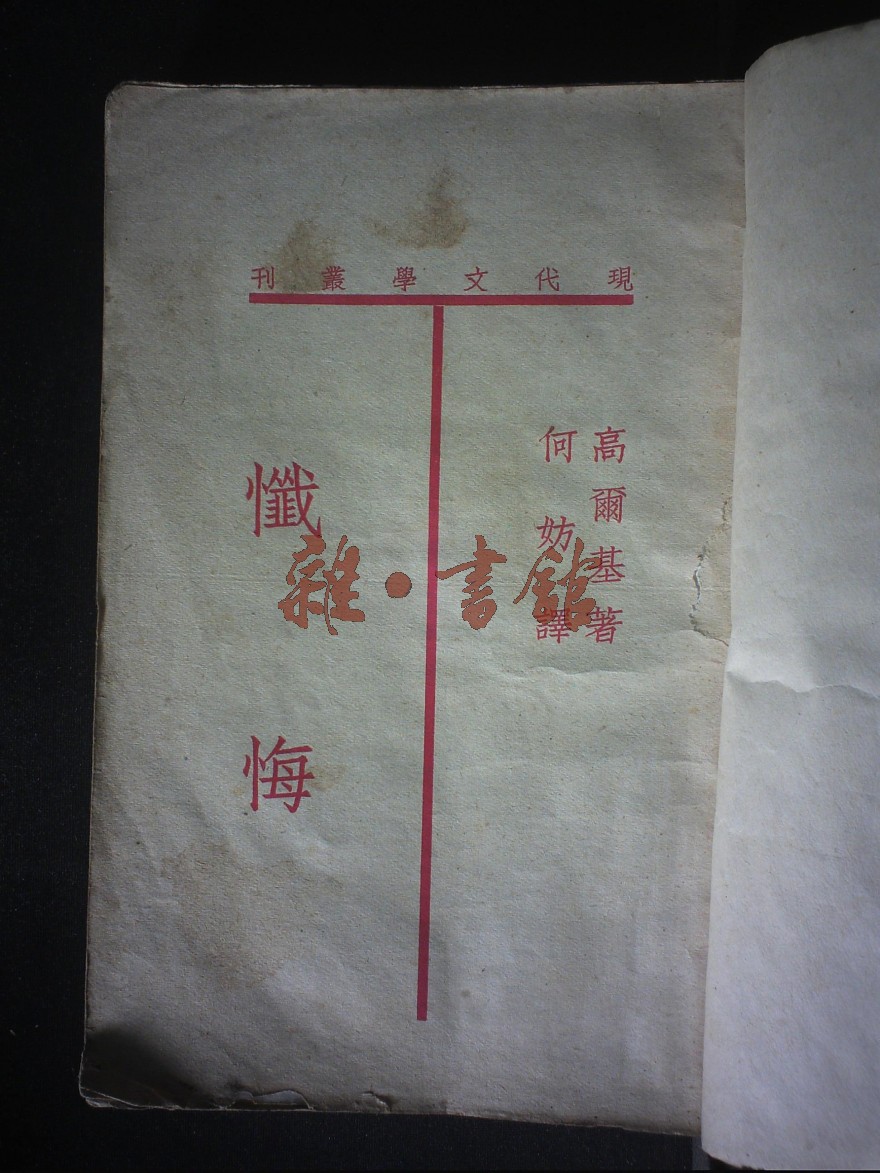 現代文學叢刊
高爾基著
何妨譯
懺悔
雜·書館